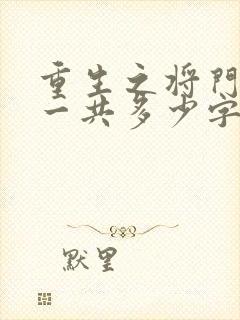 重生之将門
一共多少字
默里